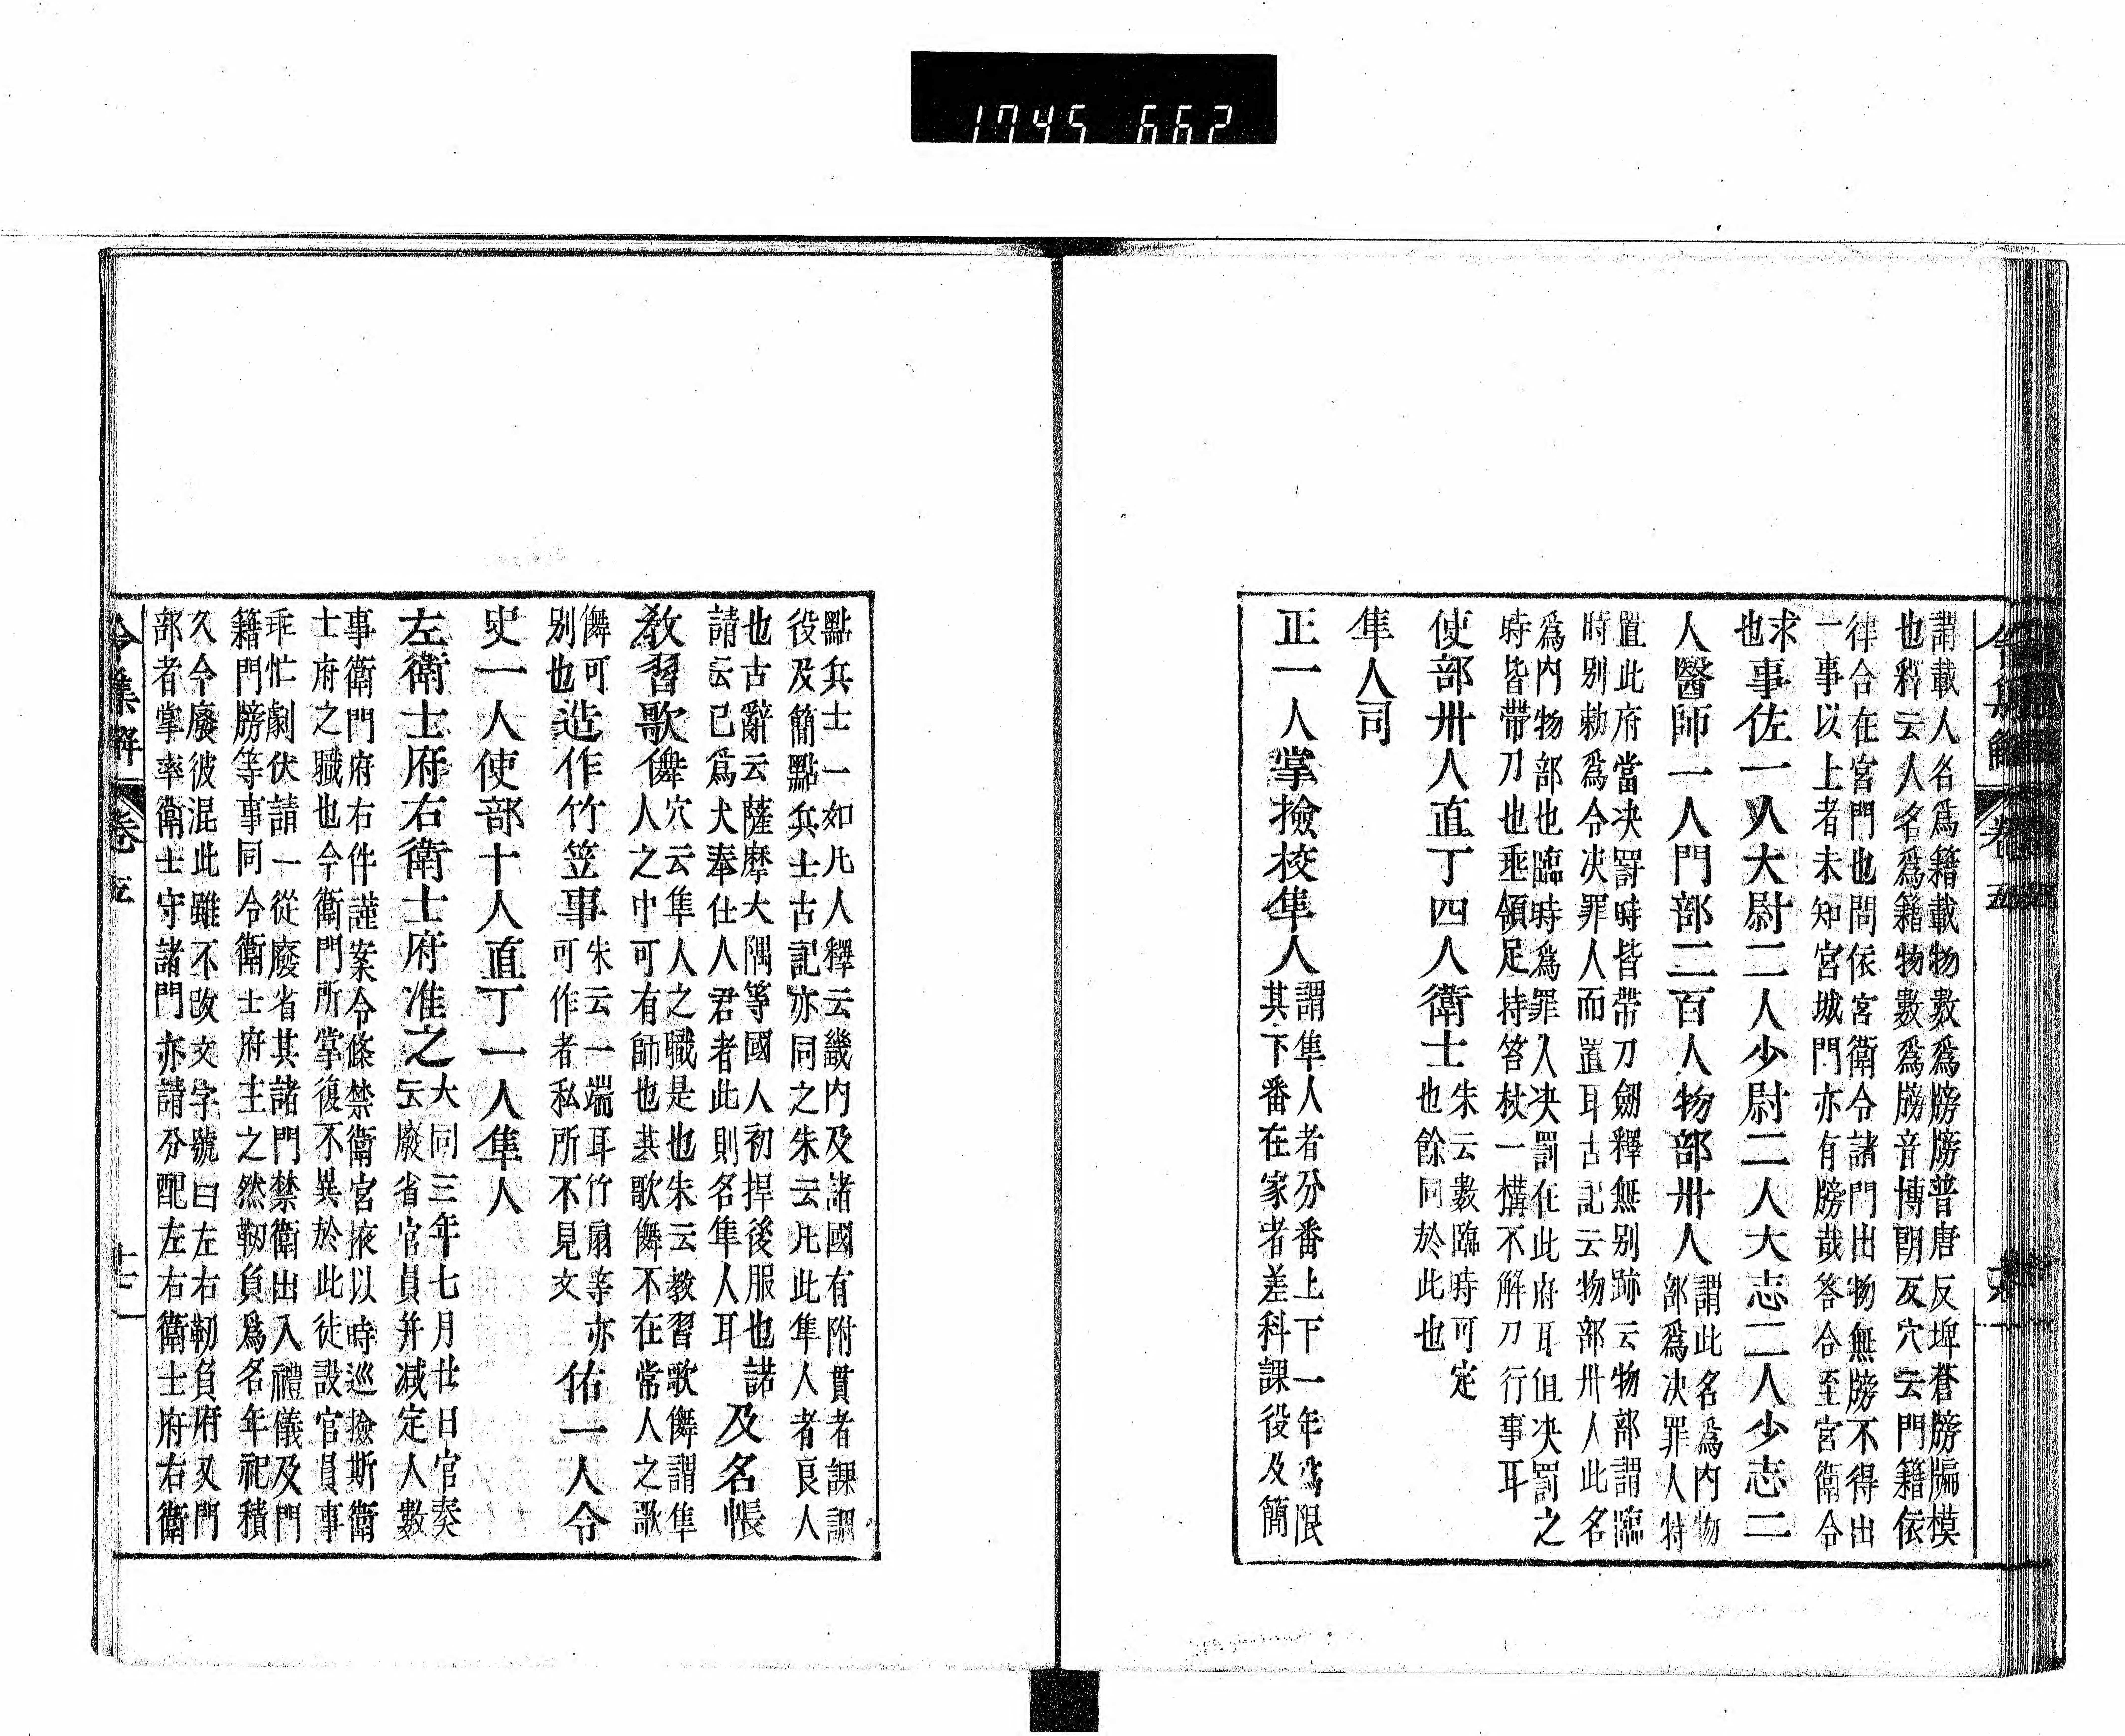 1745 662
謂載人名爲籍載物數爲牓牓普唐反埤蒼牓牖模
也釋云人名爲籍物數爲牓音博朗反穴云門籍依
律合在宮門也問依宮衛令諸門出物無牓不得出
一事以上者未知宮城門亦有牓哉答合至宮衛令
求
也
事佐一人大尉二人少尉二人大志二人少志二
人醫師一人門部二百人物部卅人
謂此名爲内物
部爲决罪人特
置此府當决罸時皆帶刀劒釋無別跡云物部謂臨
時別勅爲令决罪人而置耳古記云物部卅人此名
爲内物部也臨時爲罪人决罰在此府耳但决罰之
時皆帶刀也垂領足持笞杖一構不解刀行事耳
使部卅人直丁四人衛士
朱云數臨時可定
也餘同於此也
隼人司
正一人掌撿挍隼人
謂隼人者分番上下一年爲限
其下番在家者差科課役及簡
令集解
卷五
點兵士一如凡人釋云畿内及諸國有附貫者課調
役及簡點兵士古記亦同之朱云凡此隼人者良人
也古辭云薩摩大隅等國人初捍後服也諾
請云已爲犬奉仕人君者此則名隼人耳
及名帳
敎習歌儛
穴云隼人之職是也朱云教習歌儛謂隼
人之中可有師也其歌儛不在常人之歌
儛可
別也
造作竹笠事
朱云一端耳竹扇等亦
可作者私所不見文
佑一人令
史一人使部十人直丁一人隼人
左衛士府右衛士府准之
大同三年七月廿日官奏
云廢省官員并减定人數
事衛門府右件謹案令條禁衛宮掖以時巡撿斯衛
士府之職也今衛門所掌復不異於此徒設官員事
乖忙劇伏請一從廢省其諸門禁衛出入禮儀及門
籍門牓等事同令衛士府主之然靭負爲名年祀積
久今廢彼混此雖不改文字號曰左右靭負府又門
部者掌率衛士守諸門亦請分配左右衛士府右衛
令集解
卷五